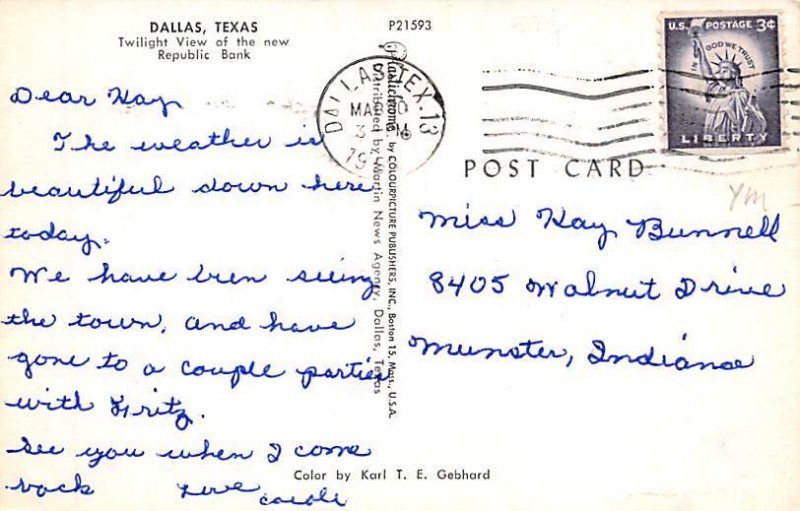 DALLAS, TEXAS
Twilight View of the new
Republic Bank
P21593
Dear Kay
The weather is
beautiful down here
today.
We have been seeing
the town, and have
gone to a couple parties
with Fritz.
See you when I come
back Love
Carole
Plastichrome by COLOURPICTURE PUBLISHERS, INC. Boston 15, Mass., U.S.A.
Distributed by Martin News Agency, Dallas, Texas
DALLAS, TEX. 13
MAR
U.S. POSTAGE 3¢
IN GOD WE TRUST
LIBERTY
POST CARD
YM
Miss Kay Bunnell
8405 Walnut Drive
Munster, Indiana
Color by Karl T. E. Gebhard